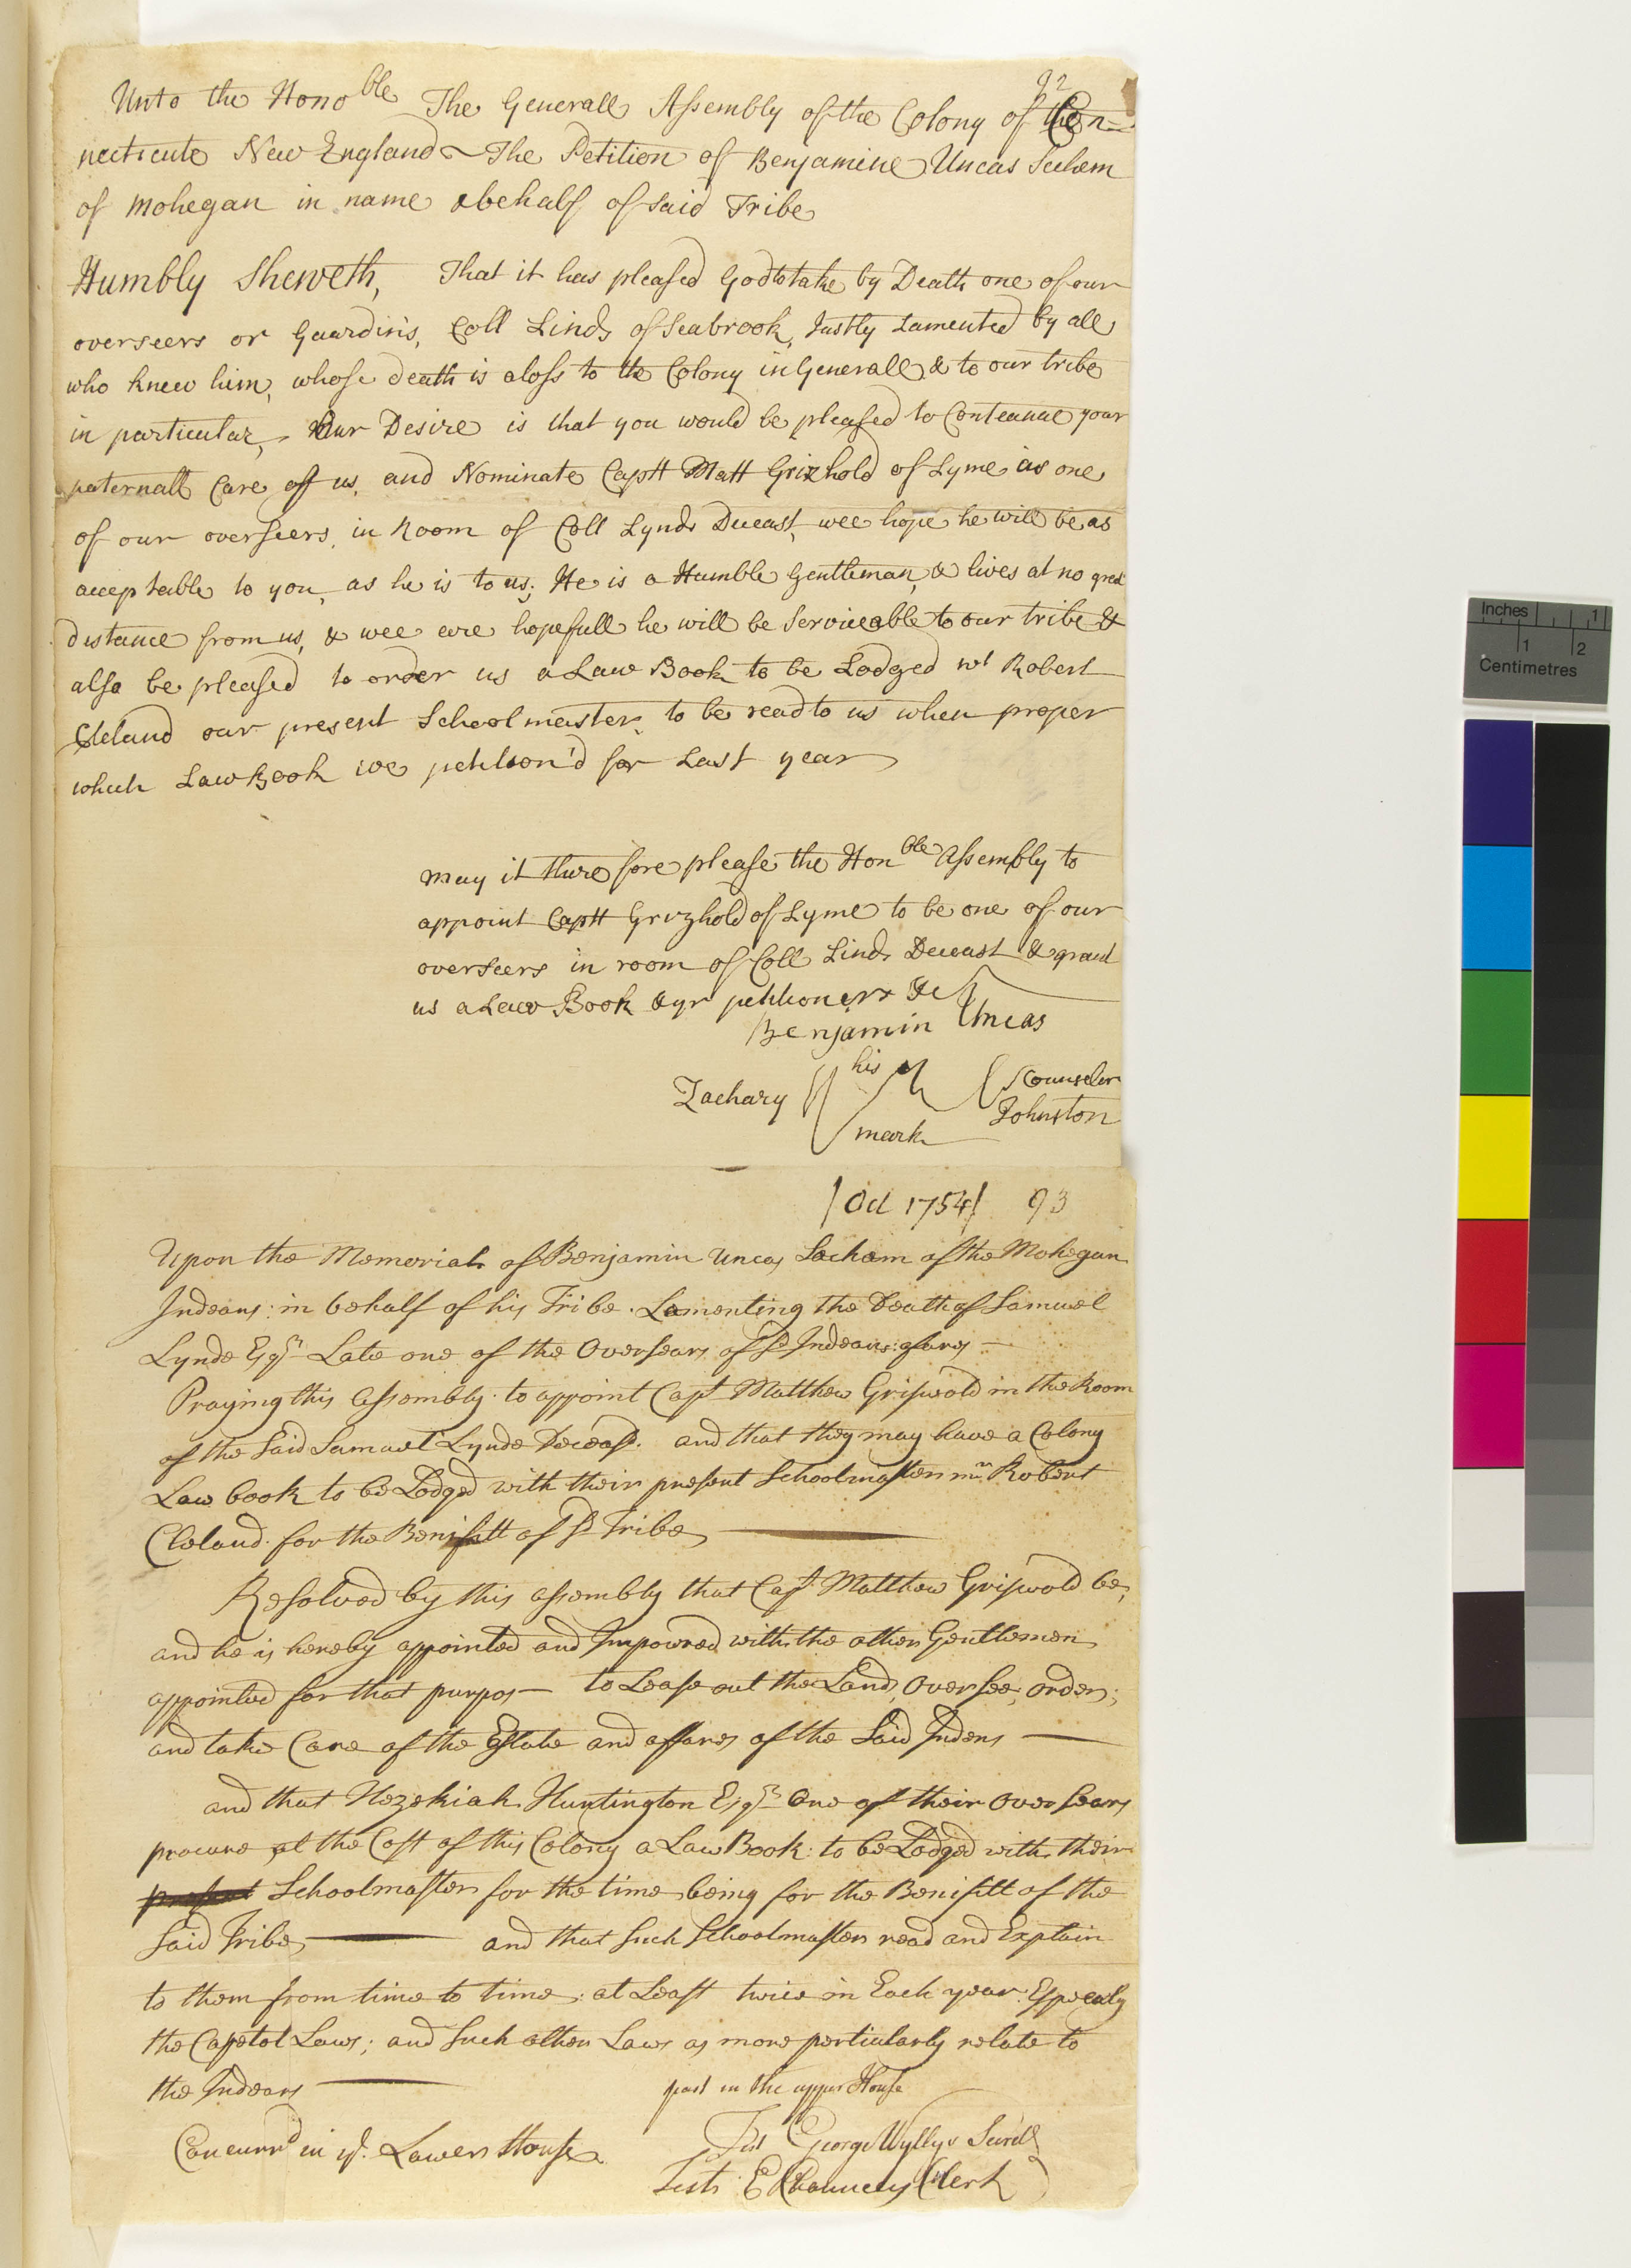 92
Unto the Honoble The Generall Assembly of the Colony of Con=
necticute New England ~ The Petition of Benjamine Uncas Sachem
of Mohegan in name & behalf of said Tribe
Humbly Sheweth, That it has pleased God to take by Death one of our
overseers or Guardins, Coll Linds of Seabrook, Justly Lamented by all
who knew him, whose death is a loss to the Colony in Generall & to our tribe
in particular, Our Desire is that you would be pleased to Conteanue your
paternall Care of us, and Nominate Captt Matt Grizhold of Lyme as one
of our overseers, in Room of Coll Lynds Deceast, wee hope he will be as
acceptable to you, as he is to us; He is a Humble Gentleman, & lives at no great
distance from us, & wee are hopefull he will be Serviceable to our tribe &
also be pleased to order us a Law Book to be Lodged wt Robert
Cleland our present Schoolmaster, to be read to us when proper
which Law Book we petition'd for Last year
may it therefore please the Honble Assembly to
appoint Captt Grizhold of Lyme to be one of our
overseers in room of Coll Linds Deceast & grant
us a Law Book & yr petitioners &c
Benjamin Uncas
Zachary his mark Counseler Johnston
/Oct 1754/ 93
Upon the Memorial of Benjamin Uncas Sachem of the Mohegan
Indeans: in behalf of his Tribe. Lamenting the Death of Samuel
Lynde Esqr Late one of the Oversears of sd Indeans: afares —
Praying this Assembly: to appoint Capt Matthew Griswold in the Room
of the Said Samuel Lynde Deceast. and that they may have a Colony
Law book to be Lodged with their present Schoolmaster mr Robert
Cleland for the Benifitt of sd Tribe —
Resolved by this assembly that Capt Matthew Griswold be,
and he is hereby appointed and Impowred with the other Gentlemen
appointed for that purpos — to Lease out the Land, Oversee, order;
and take Care of the Estate and affares of the Said Indens —
and that Hezekiah Huntington Esqr One of their Oversears
procure at the Cost of this Colony a Law Book: to be Lodged with their
present Schoolmaster for the time being for the Benifitt of the
Said Tribe — and that Such Schoolmaster read and Explain
to them from time to time: at Least twice in Each year: Espscaly
the Capetol Laws; and Such other Laws as more perticularly relate to
the Indeans —
past in the upper House
Test George Wyllys Secret
Concurrd in ye. Lower House
Test: E Chauncey Clerk
Inches 1
1 2
Centimetres